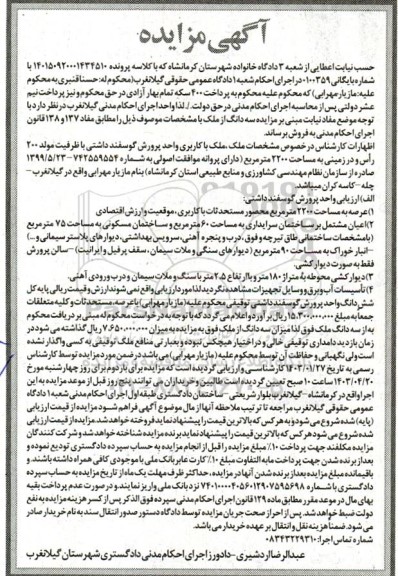 آگهی مزایده
حسب نیابت اعطایی از شعبه ۳ دادگاه خانواده شهرستان کرمانشاه که با کلاسه پرونده ۱۴۰۱۵۰۹۲۰۰۰۱۴۳۴۵۱۰ با
شماره بایگانی ۰۱۰۰۳۵۹ در اجرای احکام شعبه ۱ دادگاه عمومی حقوقی گیلانغرب (محکوم له: حسنا قنبری به محکوم
علیه: مازیار مهرابی) که محکوم علیه محکوم به پرداخت ۴۰۰ سکه تمام بهار آزادی در حق محکوم و نیز پرداخت نیم
عشر دولتی پس از محاسبه اجرای احکام مدنی در حق دولت. / لذا واحد اجرای احکام مدنی گیلانغرب در نظر دارد با
توجه موضع مفاد نیابت مبنی بر مزایده سه دانگ از ملک با مشخصات موصوف ذیل را مطابق مفاد ۱۳۷ و ۱۳۸ قانون
اجرای احکام مدنی به فروش برساند.
اظهارات کارشناس در خصوص مشخصات ملک: ملک با کاربری واحد پرورش گوسفند داشتی با ظرفیت مولد ۲۰۰
رأس و در زمینی به مساحت ۲۲۰۰ متر مربع (دارای پروانه موافقت اصولی به شماره ۷۴۲۵۵۹۵۵۴ – ۱۳۹۹/۵/۲۳
صادره از سازمان نظام مهندسی کشاورزی و منابع طبیعی استان کرمانشاه) بنام مازیار مهرابی واقع در گیلانغرب –
چله – کاسه کران میباشد.
الف) ارزیابی واحد پرورش گوسفند داشتی:
۱) عرصه به مساحت ۲۲۰۰ متر مربع محصور مستحدثات با کاربری، موقعیت و ارزش اقتصادی
۲) اعیان مشتمل بر ساختمان سرایداری به مساحت ۶۰ متر مربع و ساختمان مسکونی به مساحت ۷۵ متر مربع
(با مشخصات ساختمانی طاق تیرچه و فوق، درب و پنجره آهنی، سرویس بهداشتی، دیوارهای پلاستر سیمانی و...)
– انبار خوراک به مساحت ۹۰ متر مربع (دیوارهای سنگی و ملات سیمان، سقف پرفیل و ایرانیت) – سالن پرورش
فقط به صورت دیوار کشی.
۳) دیوار کشی محوطه به متراژ ۱۸۰ متر و با ارتفاع ۲.۵ متر با سنگ و ملات سیمان و درب ورودی آهنی.
۴) تأسیسات آب و برق و وسایل تجهیزات مشاهده نگردید لذا مورد ارزیابی واقع نمی شوند ارزش و قیمت ریالی پایه کل
شش دانگ واحد پرورش گوسفند داشتی توقیفی محکوم علیه (مازیار مهرابی) با عرصه مستحدثات و کلیه متعلقات
جمعا به مبلغ ۱۵.۳۰۰.۰۰۰.۰۰۰ ریال برآورد و اعلام می گردد که با توجه به درخواست محکوم له مبنی بر دریافت محکوم
به از سه دانگ ملک فوق لذا میزان سه دانگ از ملک فوق به مزایده به میزان ۷.۶۵۰.۰۰۰.۰۰۰ ریال گذاشته می شود در
زمان بازدید دامداری توقیفی خالی و در اختیار هیچکس نبوده و بعبارتی منافع ملک توقیفی به کسی واگذار نشده
است ولی نگهبانی و حفاظت آن توسط محکوم علیه (مازیار مهرابی) می باشد در ضمن مورد مزایده توسط کارشناس
رسمی به تاریخ ۱۴۰۳/۰۱/۲۷ کارشناسی و ارزیابی گردیده است که مزایده برای باز دوم برای روز چهارشنبه مورخ
۱۴۰۳/۰۴/۲۰ ساعت ۱۰ صبح تعیین گردیده است طالبین و خریداران می توانند پنج روز قبل از موعد مزایده به این
اجرا واقع در کرمانشاه – گیلانغرب بلوار شریعتی – ساختمان دادگستری طبقه اول اجرای احکام مدنی شعبه ۱ دادگاه
عمومی حقوقی گیلانغرب مراجعه تا ترتیب ملاحظه آنها از مال موضوع آگهی فراهم شود مزایده از قیمت ارزیابی
(پایه) شده شروع می شود و به هر کس که بالاترین قیمت را پیشنهاد نماید فروخته خواهد شد. مزایده از قیمت ارزیابی
شده شروع می شود هر کس که بالاترین قیمت را پیشنهاد نماید برنده مزایده شناخته خواهد شد و شرکت کنندگان
مزایده مکلفند جهت پرداخت ۱۰٪ مبلغ مزایده را قبل از انجام مزایده به حساب سپرده دادگستری تودیع نموده و
بعد از برنده شدن جهت پرداخت مابه التفاوت مبلغ ۱۰٪ کارت عابر بانک ملی با موجودی کافی همراه داشته باشند. و
باقیمانده مبلغ مزایده بعد از برنده شدن آنها در مزایده، حداکثر ظرف مهلت یک ماه از تاریخ مزایده به حساب سپرده
دادگستری با شماره ۷۴۰۱۰۰۰۰۴۰۵۶۰۱۲۹۰۷۵۹۵۶۹۸ نزد بانک ملی واریز نمایند و در صورت عدم پرداخت بقیه
بهای مال در موعد مقرر مطابق ماده ۱۲۹ قانون اجرای احکام مدنی سپرده فوق الذکر پس از کسر هزینه مزایده به نفع
دولت ضبط خواهد شد. پس از احراز صحت جریان مزایده توسط دادگاه دستور صدور انتقال سند به نام خریدار صادر
می شود. ضمنا هزینه نقل و انتقال بر عهده خریدار می باشد.
شماره تماس اجرا: ۰۸۳۴۳۲۲۹۳۱۰
عبدالرضا اردشیری – دادورز اجرای احکام مدنی دادگستری شهرستان گیلانغرب